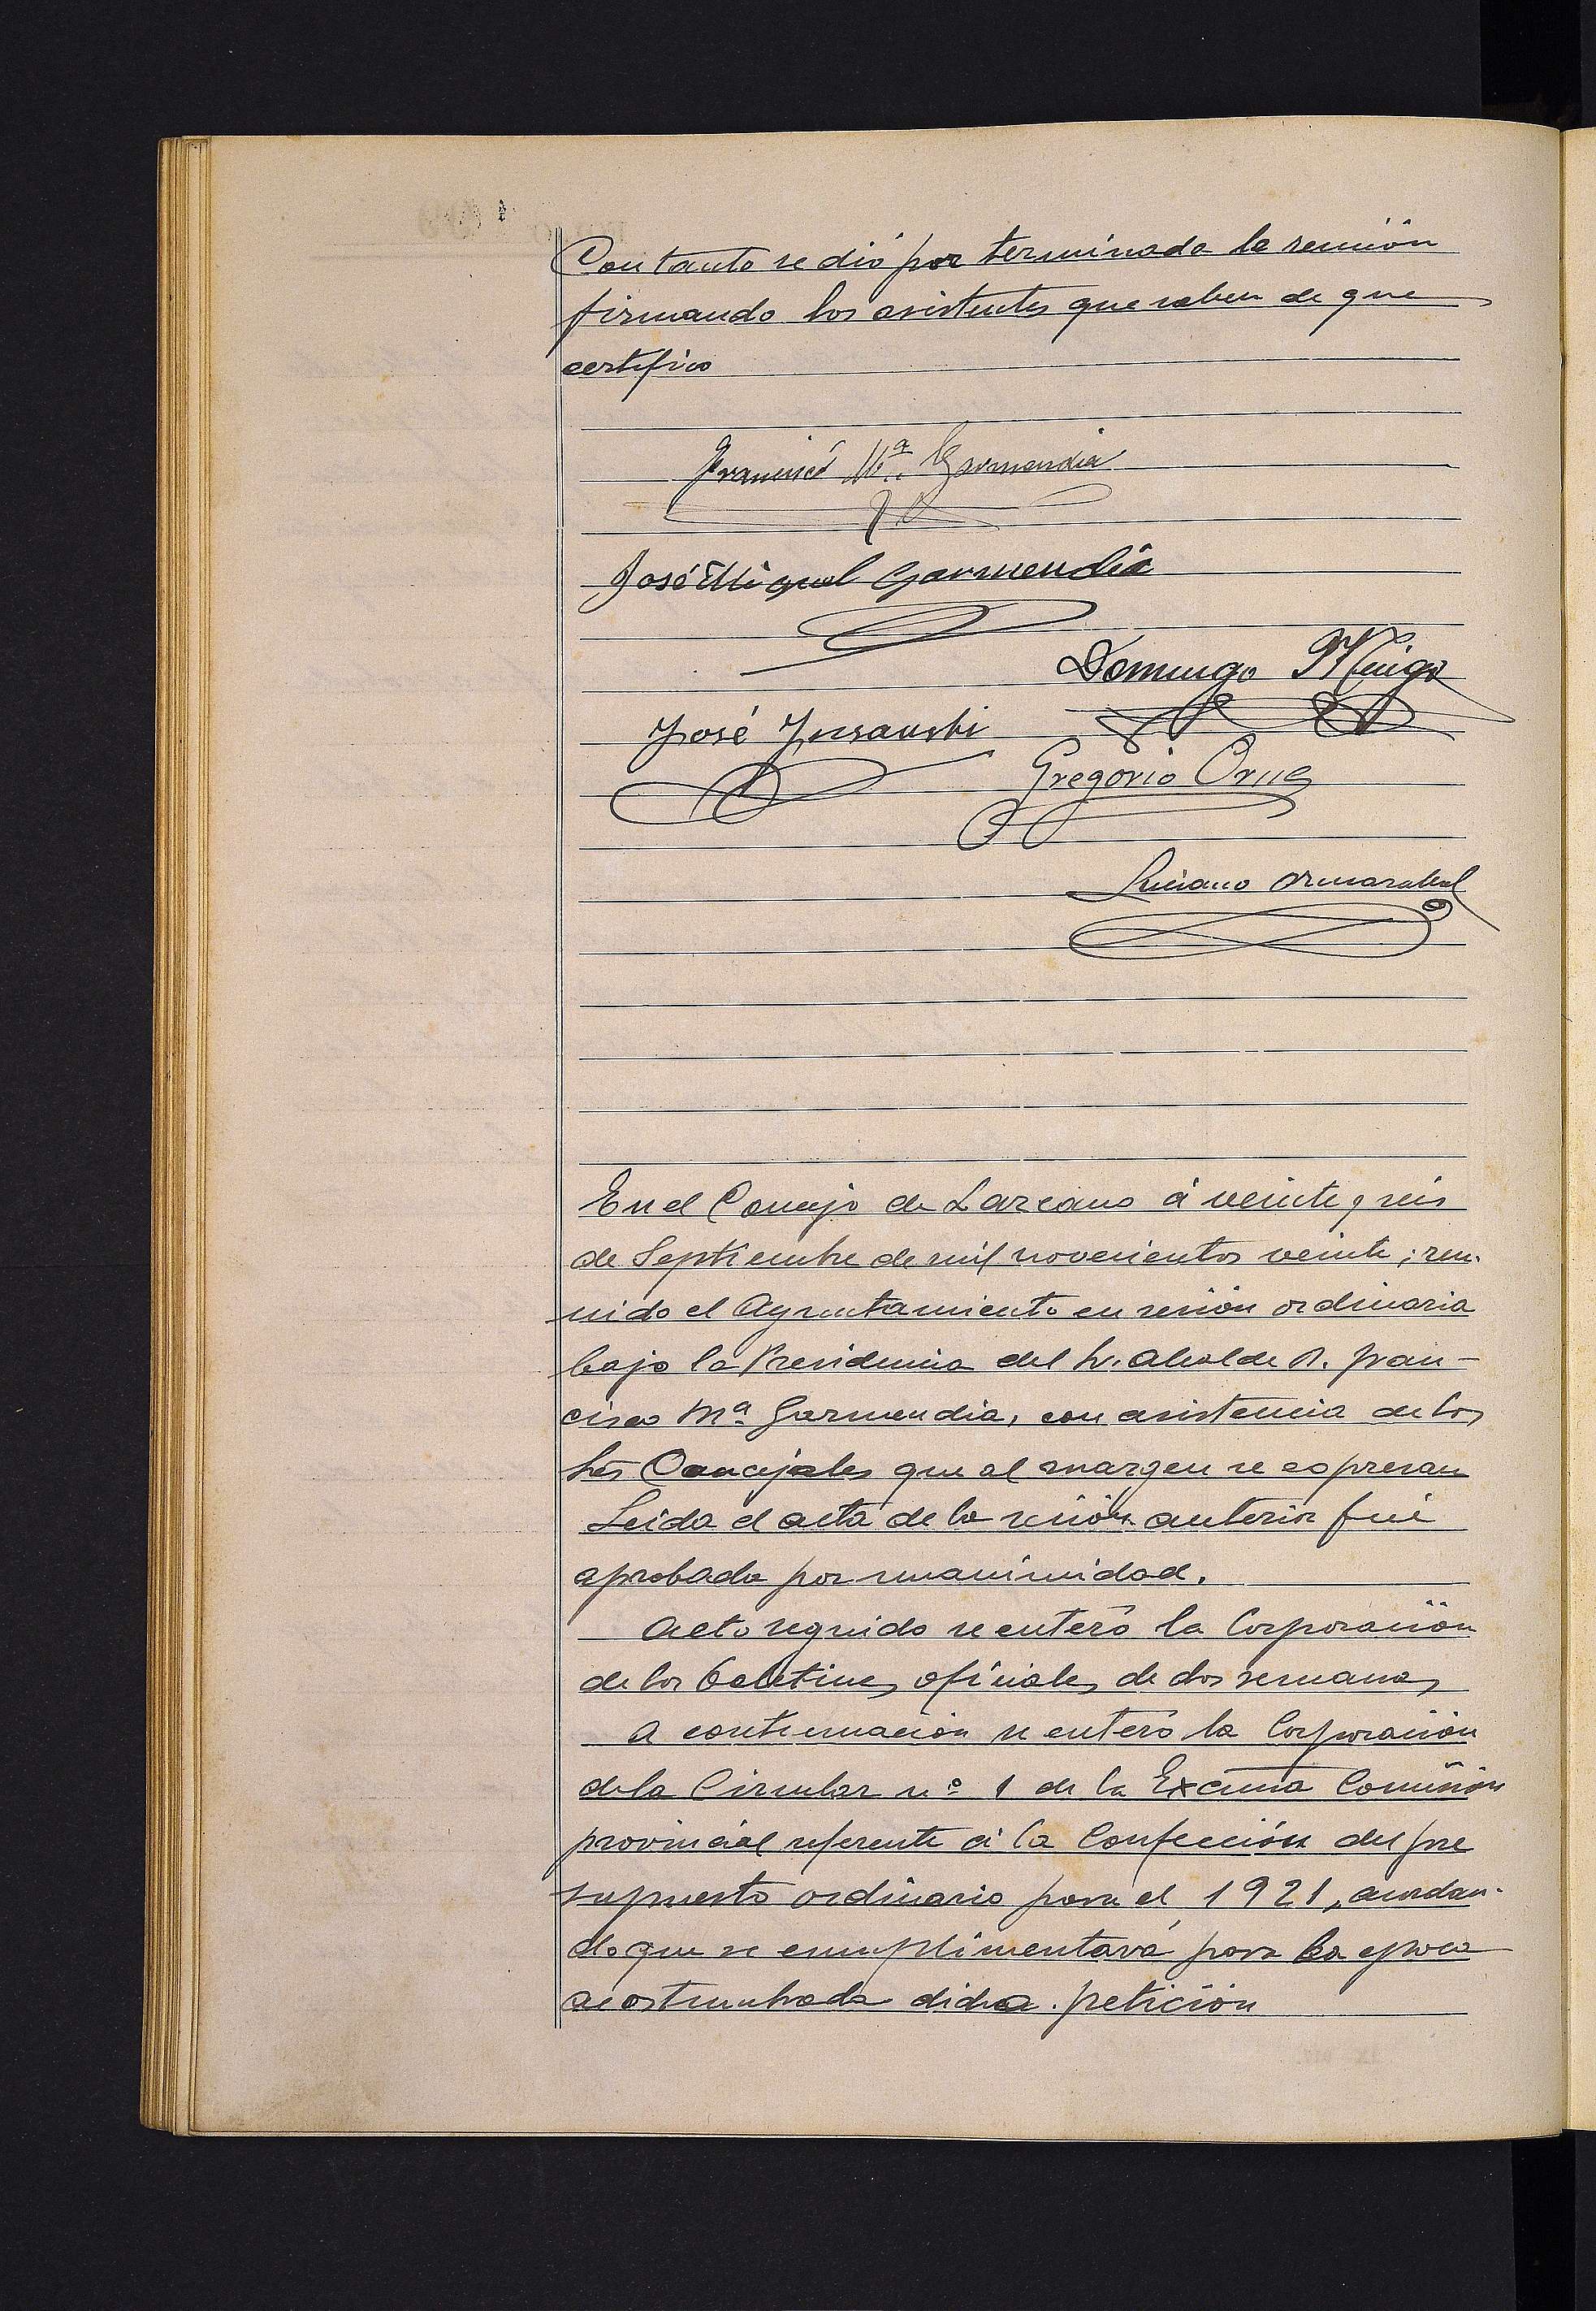 Con tanto se dió por terminada la reunión
firmando los asistentes que saben de que
certifico
Francisco Mª. Garmendia
José Miguel Garmendia
Domingo
José Insausti
Gregorio Orue
Luciano Ormazabal
En el Concejo de Lazcano á veinte y seis
de Septiembre de mil novecientos veinte; reu-
nido el Ayuntamiento en sesión ordinaria
bajo la Presidencia del Sr. Alcalde D. Fran-
cisco Mª Garmendia, con asistencia de los
Sres Concejales que al margen se espresan
Leida el acta de la sesión anterior fué
aprobada por unanimidad.
Acto seguido se enteró la Corporación
de los Boletines oficiales de dos semanas
A continuación se enteró la Corporación
de la Circular nº 1 de la Excma Comisión
provincial referente á la Confección del pre
supuesto ordinario para el 1921, acordan-
do que se cumplimentará para la epoca
acostumbrada dicha petición